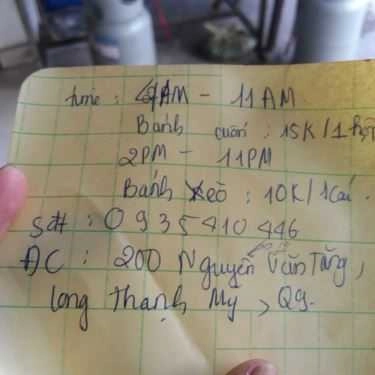 time : 6AM - 11AM
Bánh cuốn : 15K / 1 hộp
2PM - 11PM
Bánh xèo : 10K / 1 cái.
Sđt : 0935 410 446
ĐC : 200 Nguyễn Văn Tăng,
long thạnh Mỹ, Q9.